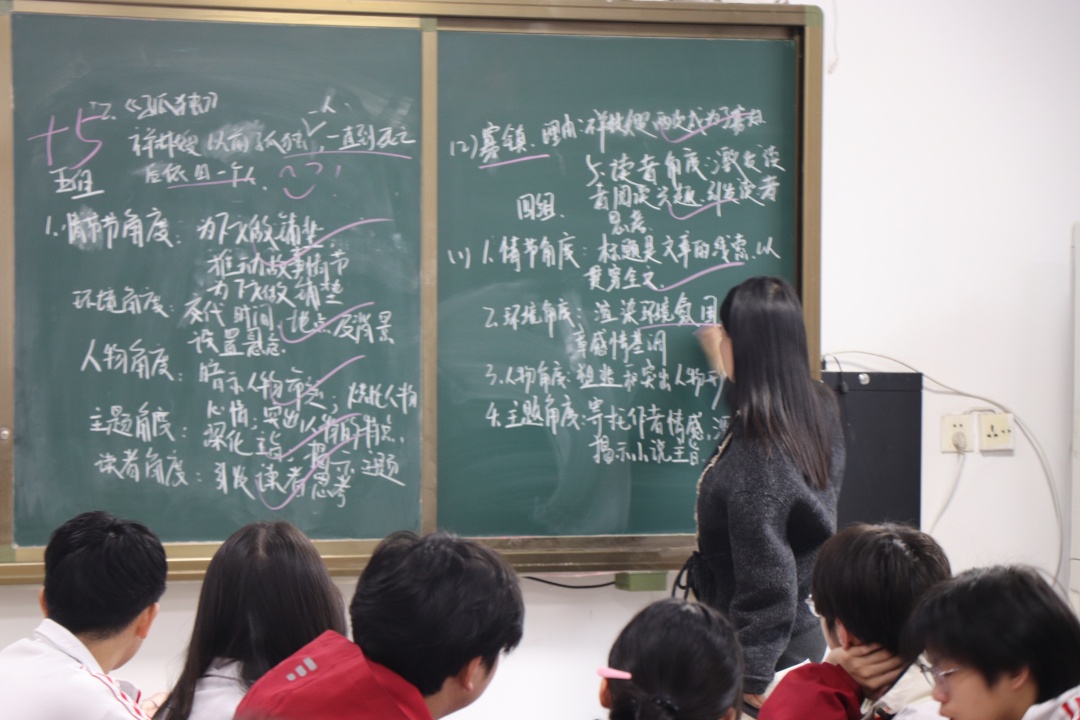 +5
2. 《孤独》
一人.
祥林嫂 以前孤独, 一直到死之
后依旧一个人.
五组
1. 情节角度: 为下文做铺垫
推动故事情节
为下文做铺垫
环境角度: 交代时间、地点及背景
设置悬念.
人物角度: 暗示人物命运; 烘托人物
心情; 突出人物的特点.
主题角度: 深化主旨 揭示主题
读者角度: 引发读者思考
(2) 寡镇. 理由: 祥林嫂两次成为寡妇
5. 读者角度: 激发读
者阅读兴趣. 引发读者
思考.
四组.
(1) 1. 情节角度: 标题是文章的线索, 以
贯穿全文.
2. 环境角度: 渲染环境氛围
章感情基调
3. 人物角度: 塑造和突出人物形
4. 主题角度: 寄托作者情感,
揭示小说主旨